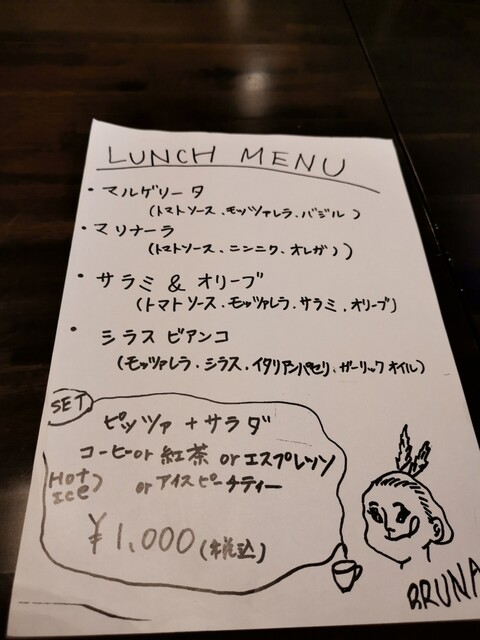 LUNCH MENU
・マルゲリータ
(トマトソース、モッツァレラ、バジル)
・マリナーラ
(トマトソース、ニンニク、オレガノ)
・サラミ & オリーブ
(トマトソース、モッツァレラ、サラミ、オリーブ)
・シラス ビアンコ
(モッツァレラ、シラス、イタリアンパセリ、ガーリックオイル)
SET
ピッツァ + サラダ
コーヒー or 紅茶 or エスプレッソ
Hot
Ice
or アイスピーチティー
¥1,000 (税込)
BRUNA